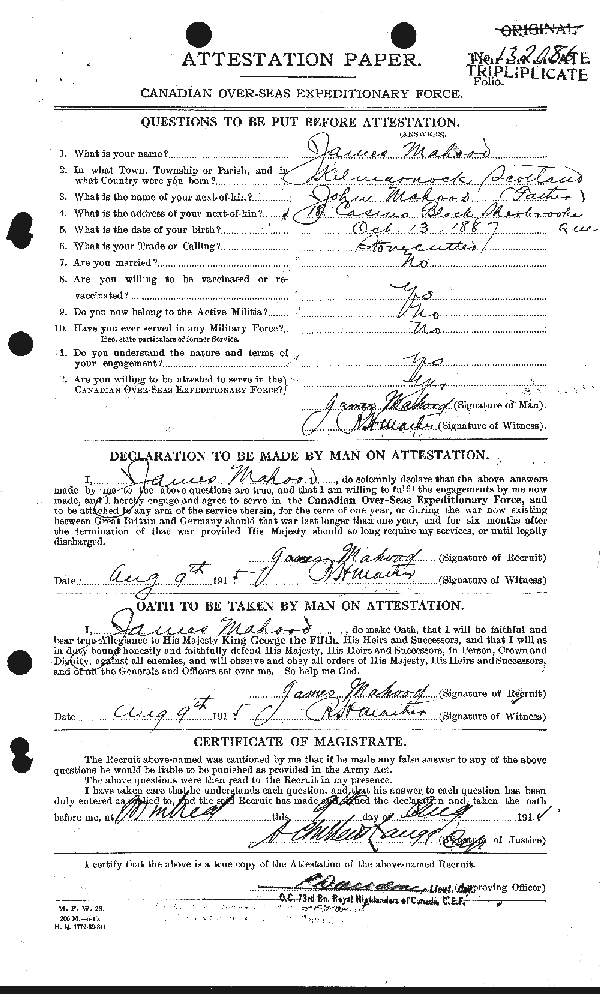 ORIGINAL
No. 132086
TRIPLIPLICATE
Folio.
ATTESTATION PAPER.
CANADIAN OVER-SEAS EXPEDITIONARY FORCE.
QUESTIONS TO BE PUT BEFORE ATTESTATION.
(ANSWERS).
1. What is your name? James Mahood
2. In what Town, Township or Parish, and in
what Country were you born? Kilmarnock, Scotland
3. What is the name of your next-of-kin? John Mahood (Father)
4. What is the address of your next-of-kin? Block Sherbrooke
Que.
5. What is the date of your birth? Oct 13 1887
6. What is your Trade or Calling? Stonecutter
7. Are you married? No
8. Are you willing to be vaccinated or re-
vaccinated? Yes
9. Do you now belong to the Active Militia? No
10. Have you ever served in any Military Force? No
If so, state particulars of former Service.
1. Do you understand the nature and terms of
your engagement? Yes
2. Are you willing to be attested to serve in the
CANADIAN OVER-SEAS EXPEDITIONARY FORCE? Yes
James Mahood (Signature of Man).
(Signature of Witness).
DECLARATION TO BE MADE BY MAN ON ATTESTATION.
I, James Mahood, do solemnly declare that the above answers
made by me to the above questions are true, and that I am willing to fulfil the engagements by me now
made, and I hereby engage and agree to serve in the Canadian Over-Seas Expeditionary Force, and
to be attached to any arm of the service therein, for the term of one year, or during the war now existing
between Great Britain and Germany should that war last longer than one year, and for six months after
the termination of that war provided His Majesty should so long require my services, or until legally
discharged.
James Mahood (Signature of Recruit)
Date Aug 9th 1915 (Signature of Witness)
OATH TO BE TAKEN BY MAN ON ATTESTATION.
I, James Mahood, do make Oath, that I will be faithful and
bear true Allegiance to His Majesty King George the Fifth, His Heirs and Successors, and that I will as
in duty bound honestly and faithfully defend His Majesty, His Heirs and Successors, in Person, Crown and
Dignity, against all enemies, and will observe and obey all orders of His Majesty, His Heirs and Successors,
and of all the Generals and Officers set over me. So help me God.
James Mahood (Signature of Recruit)
Date Aug 9th 1915 (Signature of Witness)
CERTIFICATE OF MAGISTRATE.
The Recruit above-named was cautioned by me that if he made any false answer to any of the above
questions he would be liable to be punished as provided in the Army Act.
The above questions were then read to the Recruit in my presence.
I have taken care that he understands each question, and that his answer to each question has been
duly entered as replied to, and the said Recruit has made and signed the declaration and taken the oath
before me, at Montreal this 9 day of Aug 191
(Signature of Justice)
I certify that the above is a true copy of the Attestation of the above-named Recruit.
Lieut. Col. (Approving Officer)
O.C. 73rd Bn. Royal Highlanders of Canada, C.E.F.
M. F. W. 23.